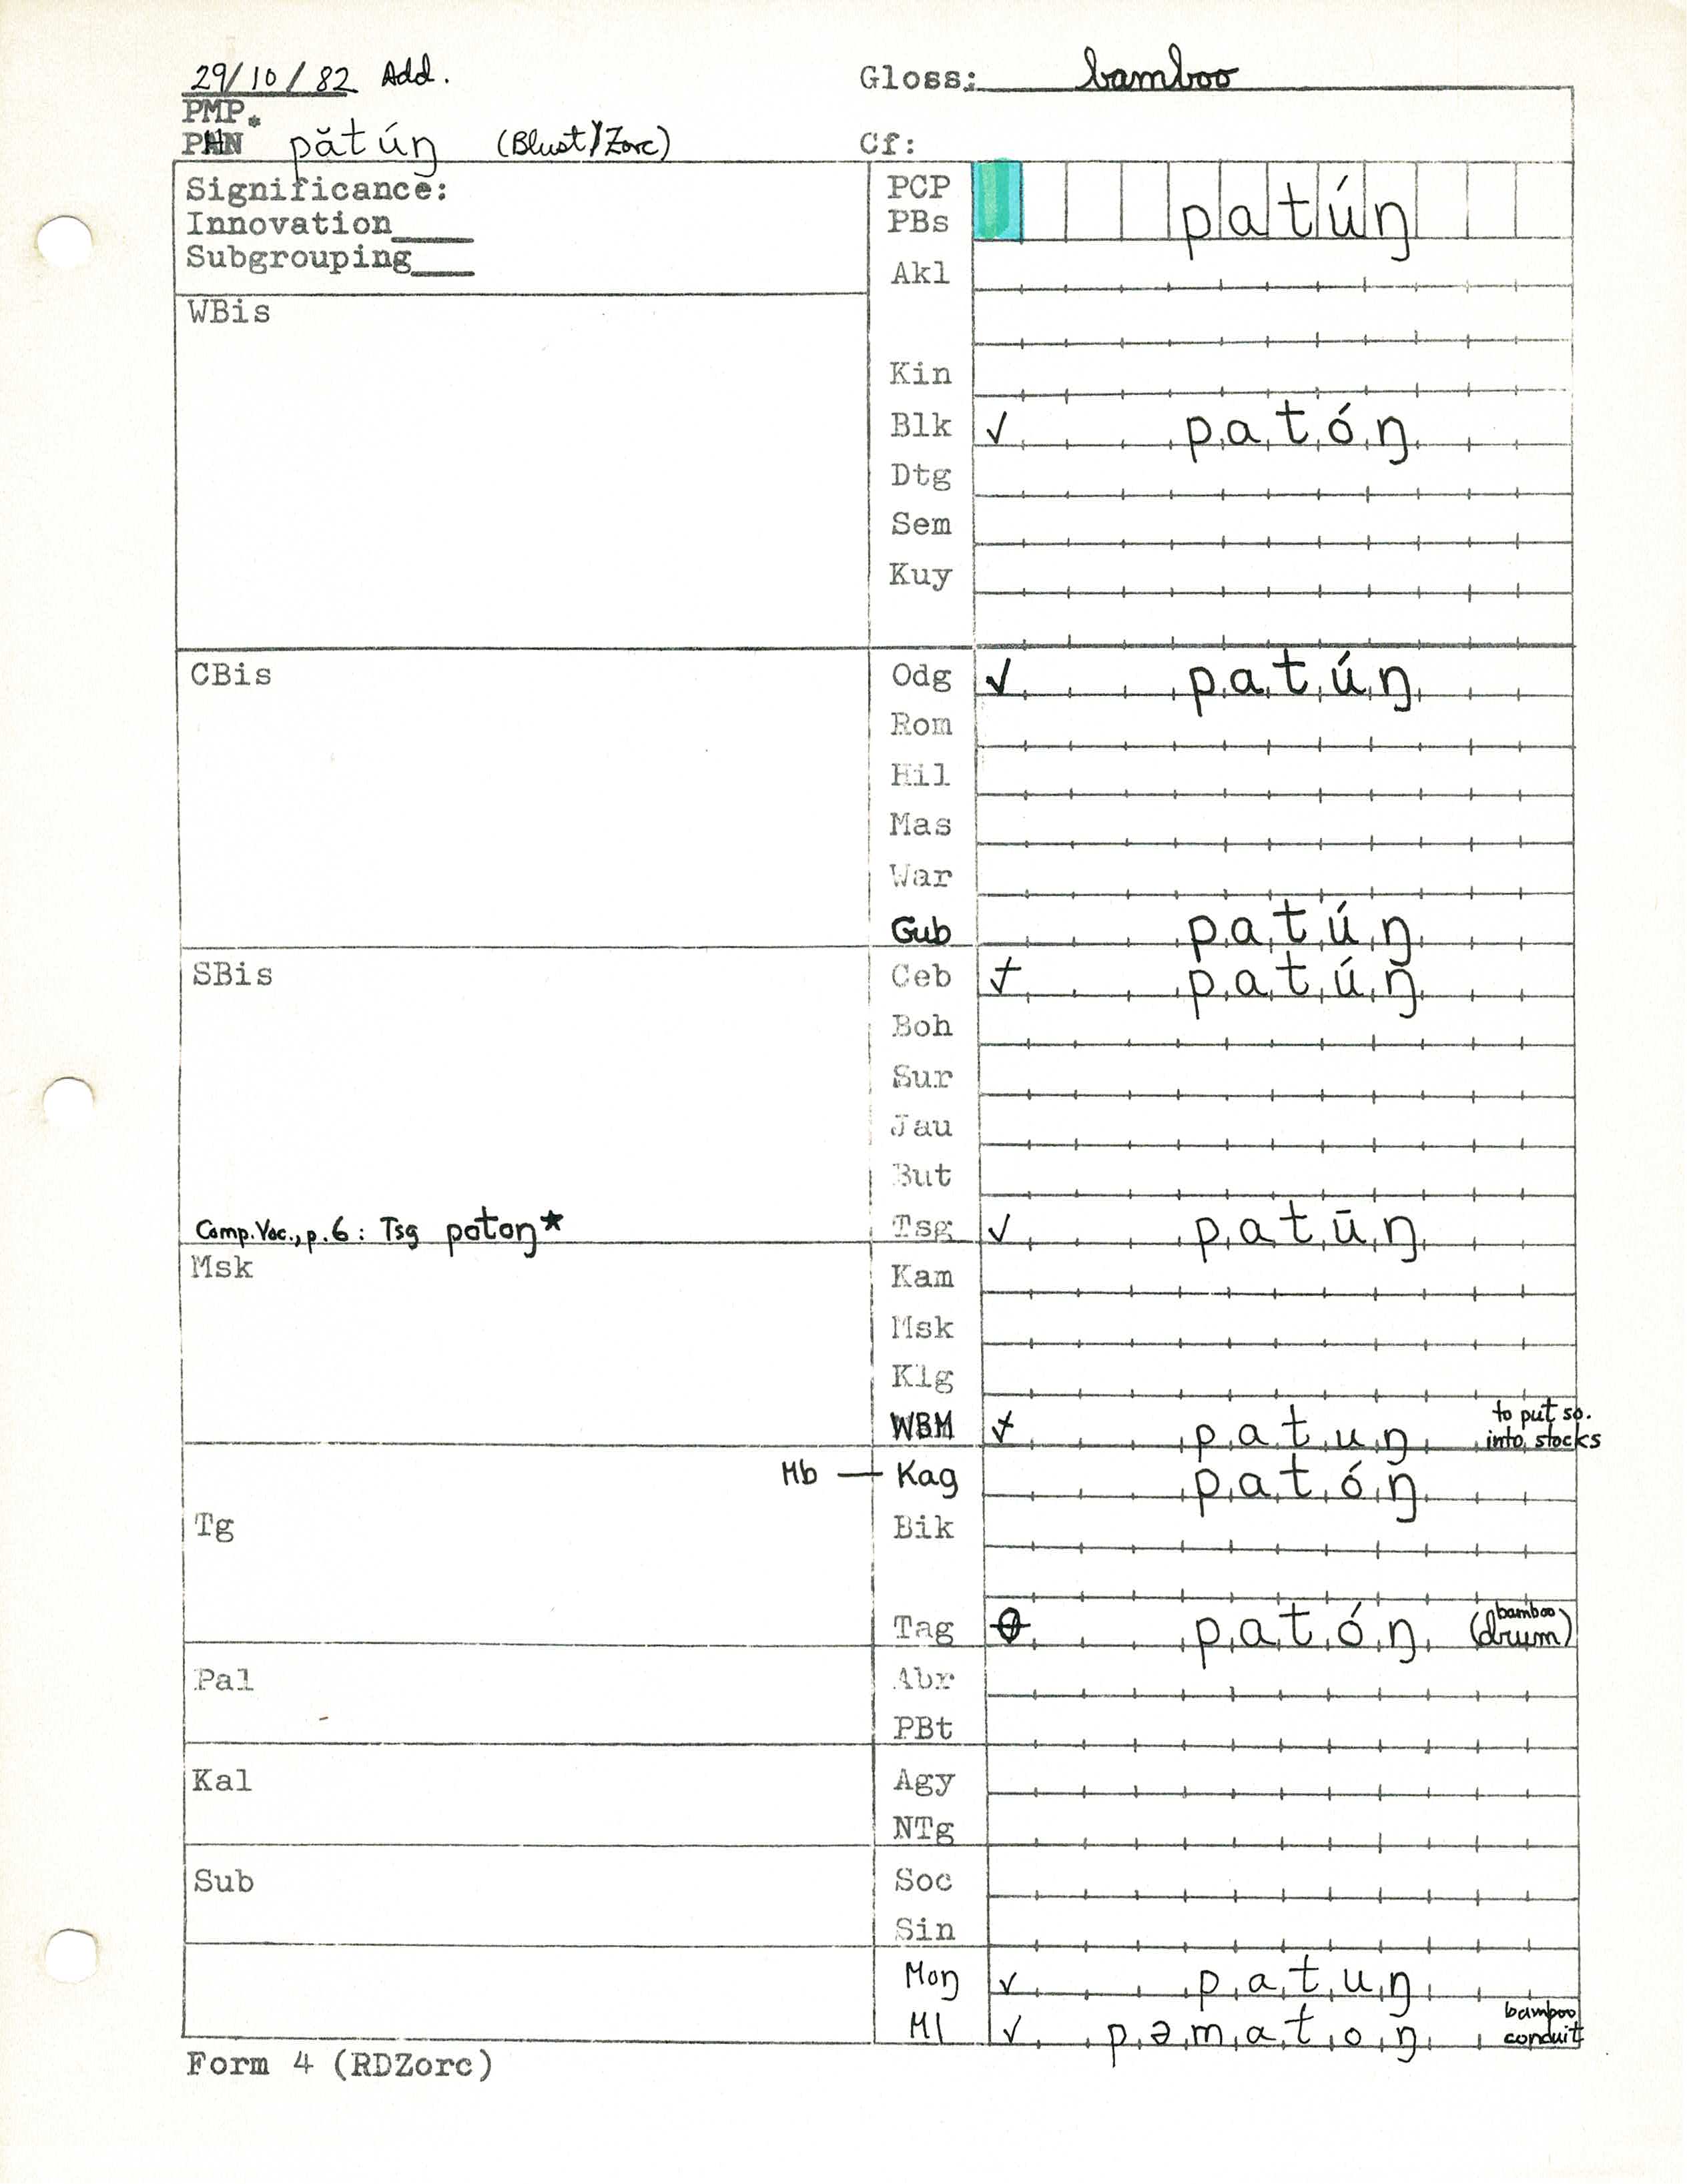 29/10/82 Add.
Gloss: bamboo
PMP
PHN * pătúŋ (Blust/Zorc)
Cf:
Significance:
Innovation___
Subgrouping___
PCP
PBs patúŋ
Akl
WBis
Kin
Blk ✓ patóŋ
Dtg
Sem
Kuy
CBis
Odg ✓ patúŋ
Rom
Hil
Mas
War
Gub patúŋ
SBis
Ceb patúŋ
Boh
Sur
Jau
But
Comp. Voc., p. 6: Tsg patoŋ★
Tsg ✓ patūŋ
Msk
Kam
Msk
Klg
WBM patuŋ to put so. into stocks
Mb — Kag patóŋ
Tg
Bik
Tag patóŋ (bamboo drum)
Pal
Abr
PBt
Kal
Agy
NTg
Sub
Soc
Sin
Moŋ ✓ patuŋ
Ml ✓ pəmatoŋ bamboo conduit
Form 4 (RDZorc)